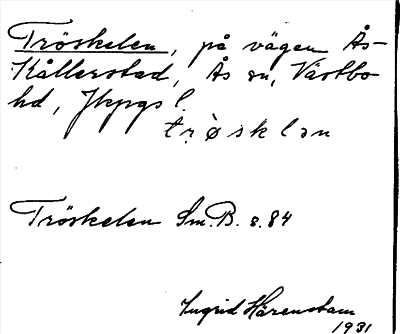 Tröskelen, på vägen Ås-
Kållerstad, Ås sn, Västbo
hd, Jkpgs l.
trøsklən
Tröskelen Sm.B. s. 84
Ingrid Härenstam
1931